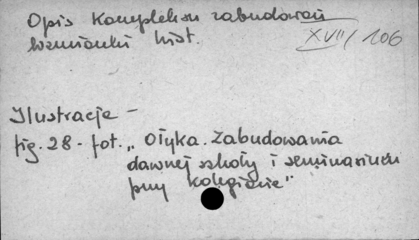 Opis kompleksu zabudowań
wzmianki hist.
XVII/106
Ilustracje -
fig. 28 - fot. „Ołyka. Zabudowania
dawnej szkoły i seminarium
przy kolegiacie"